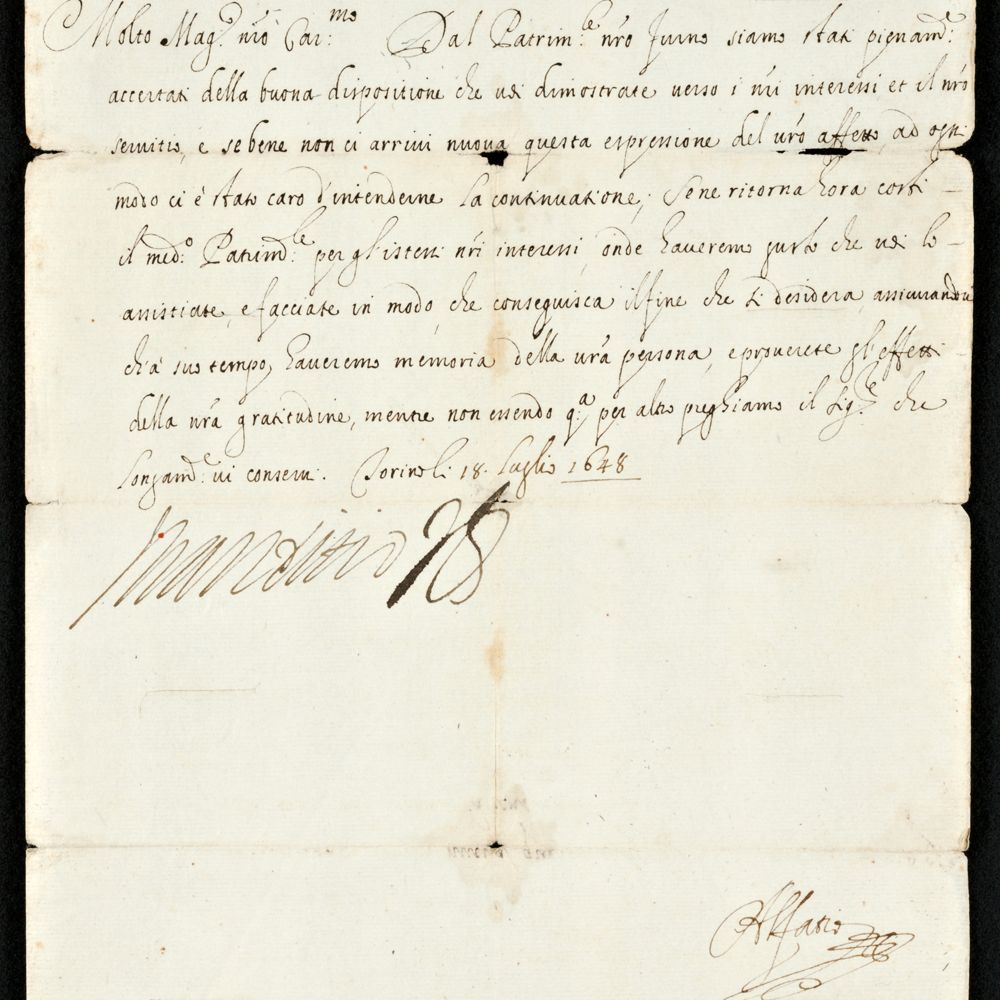 Molto Mag.^co nr̃o Car.^mo Dal Patrim.^le nr̃o siamo stati pienam.^e
accertati della buona dispositione che voi dimostrate verso i nr̃i interessi et il nr̃o
servitio, e se bene non ci arrivi nuova questa espressione del vr̃o affetto, ad ogni
modo ci è stato caro d'intenderne la continuatione, Se ne ritorna hora costì
il med.^o Patrim.^le per gl'istessi nr̃i interessi, onde haveremo gusto che voi lo
assistiate, e facciate in modo, che conseguisca il fine che si desidera, assicurandovi
ch'à suo tempo, haveremo memoria della vr̃a persona, e proverete gl'effetti
della nr̃a gratitudine, mentre non essendo q.^a per altro preghiamo il Sig.^re che
longam.^e vi conservi. Torino li 18. Luglio 1648